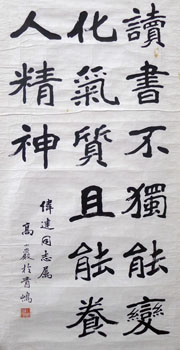 讀書不獨能變
化氣質且能養
人精神
偉達同志屬
高二嚴於青島